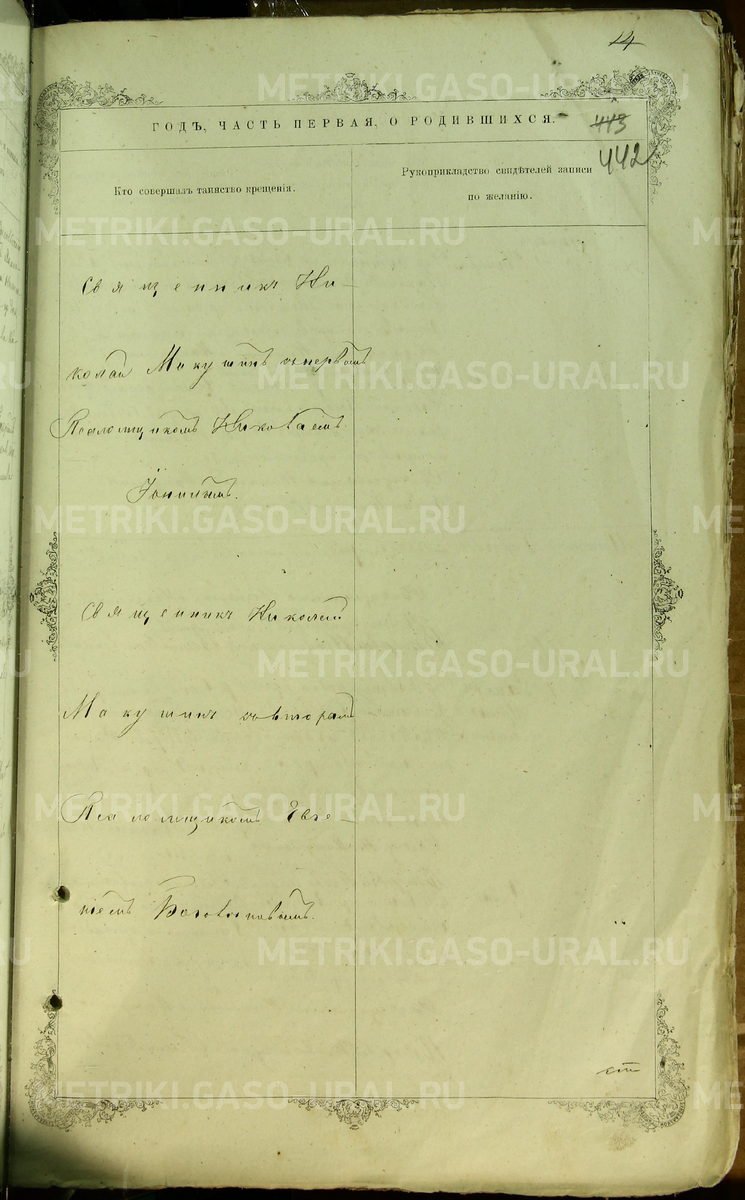 14
ГОДЪ, ЧАСТЬ ПЕРВАЯ, О РОДИВШИХСЯ.
413
442
Кто совершалъ таинство крещенія.
Рукоприкладство свидѣтелей записи
по желанію.
Священникъ Ни-
колай Макушинъ съ первымъ
Псаломщикомъ Николаемъ
Священникъ Николай
Макушинъ съ вторымъ
Псаломщикомъ Евге-
ніемъ
METRIKI.GASO-URAL.RU